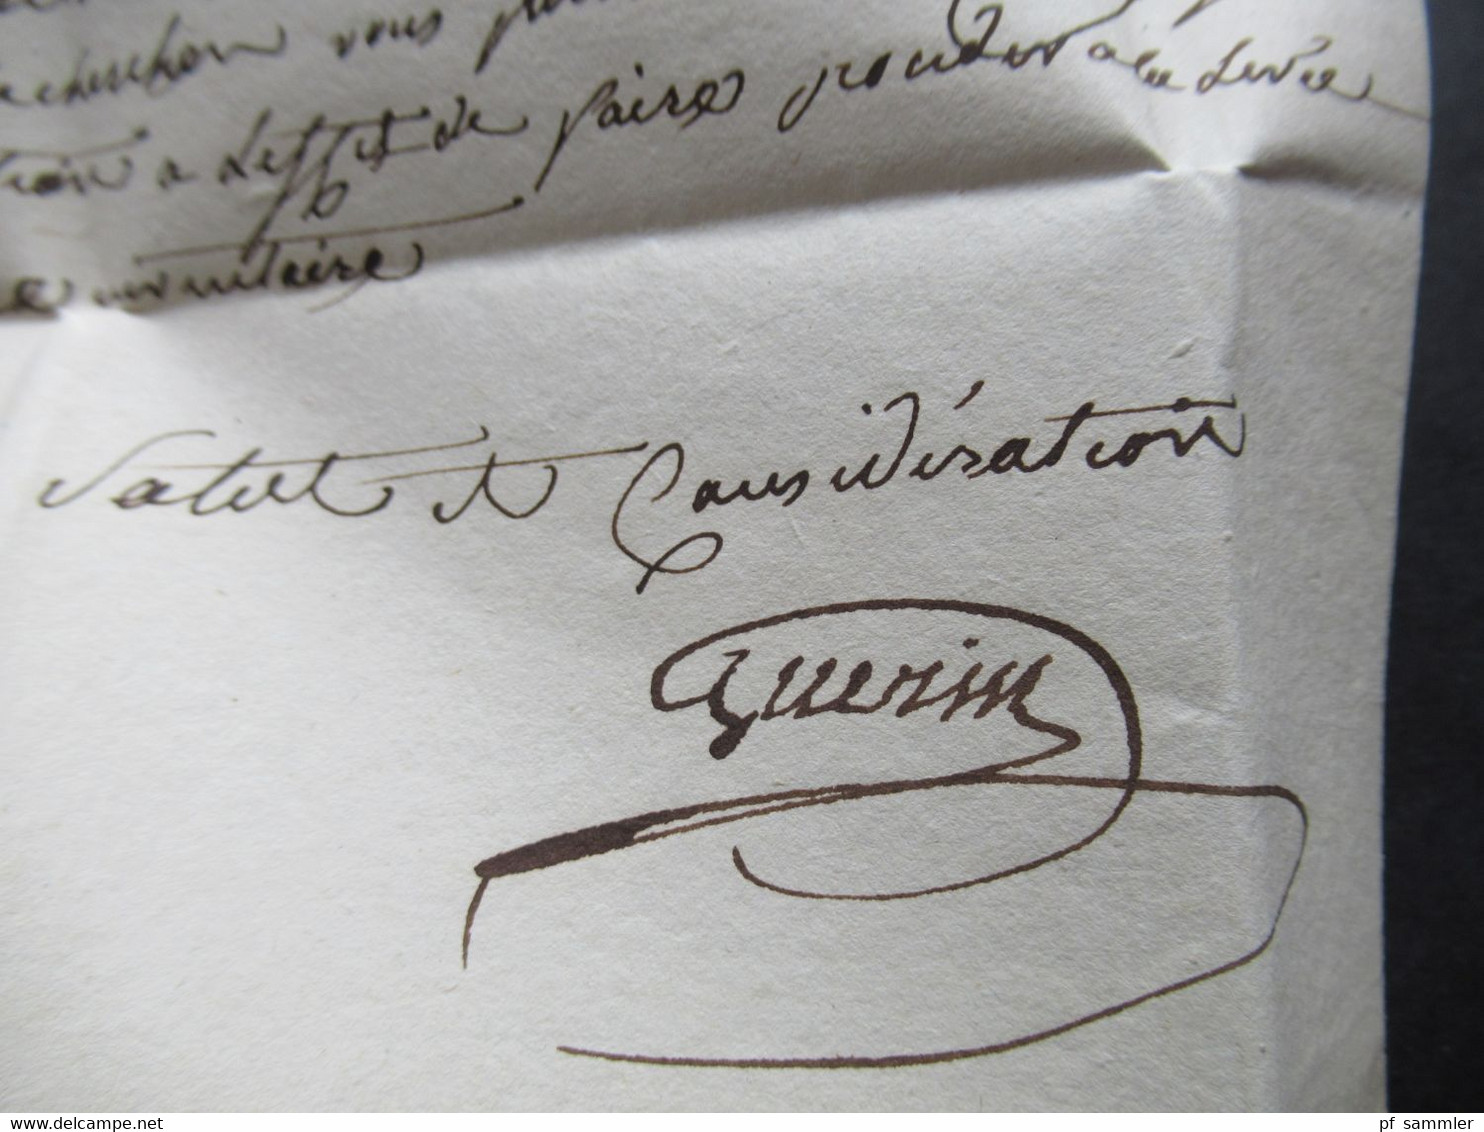 vous
à L'effet de faire proceder a la Levée
inventaire
Salut et Considération
Guerin
www.delcampe.net
pf_sammler